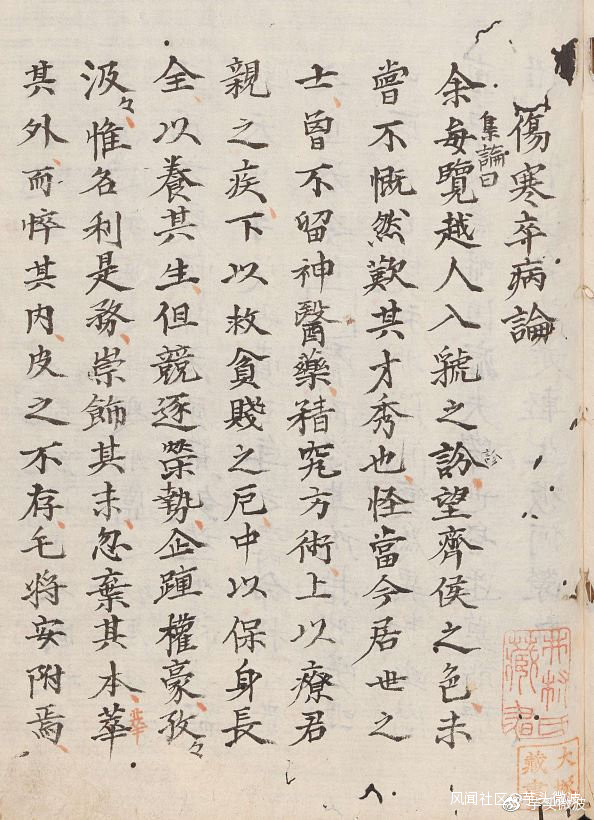 傷寒卒病論
集論曰
余每覽越人入虢之訜望齊侯之色未
診
甞不慨然歎其才秀也怪當今居世之
士曽不留神醫藥精究方術上以療君
親之疾下以救貪賤之厄中以保身長
全以養其生但競逐榮勢企踵權豪孜々
汲々惟名利是務崇飾其末忽棄其本莘
華
其外而悴其内皮之不存毛將安附焉
藏書
風闻社区@芋头微波
@芋头微波